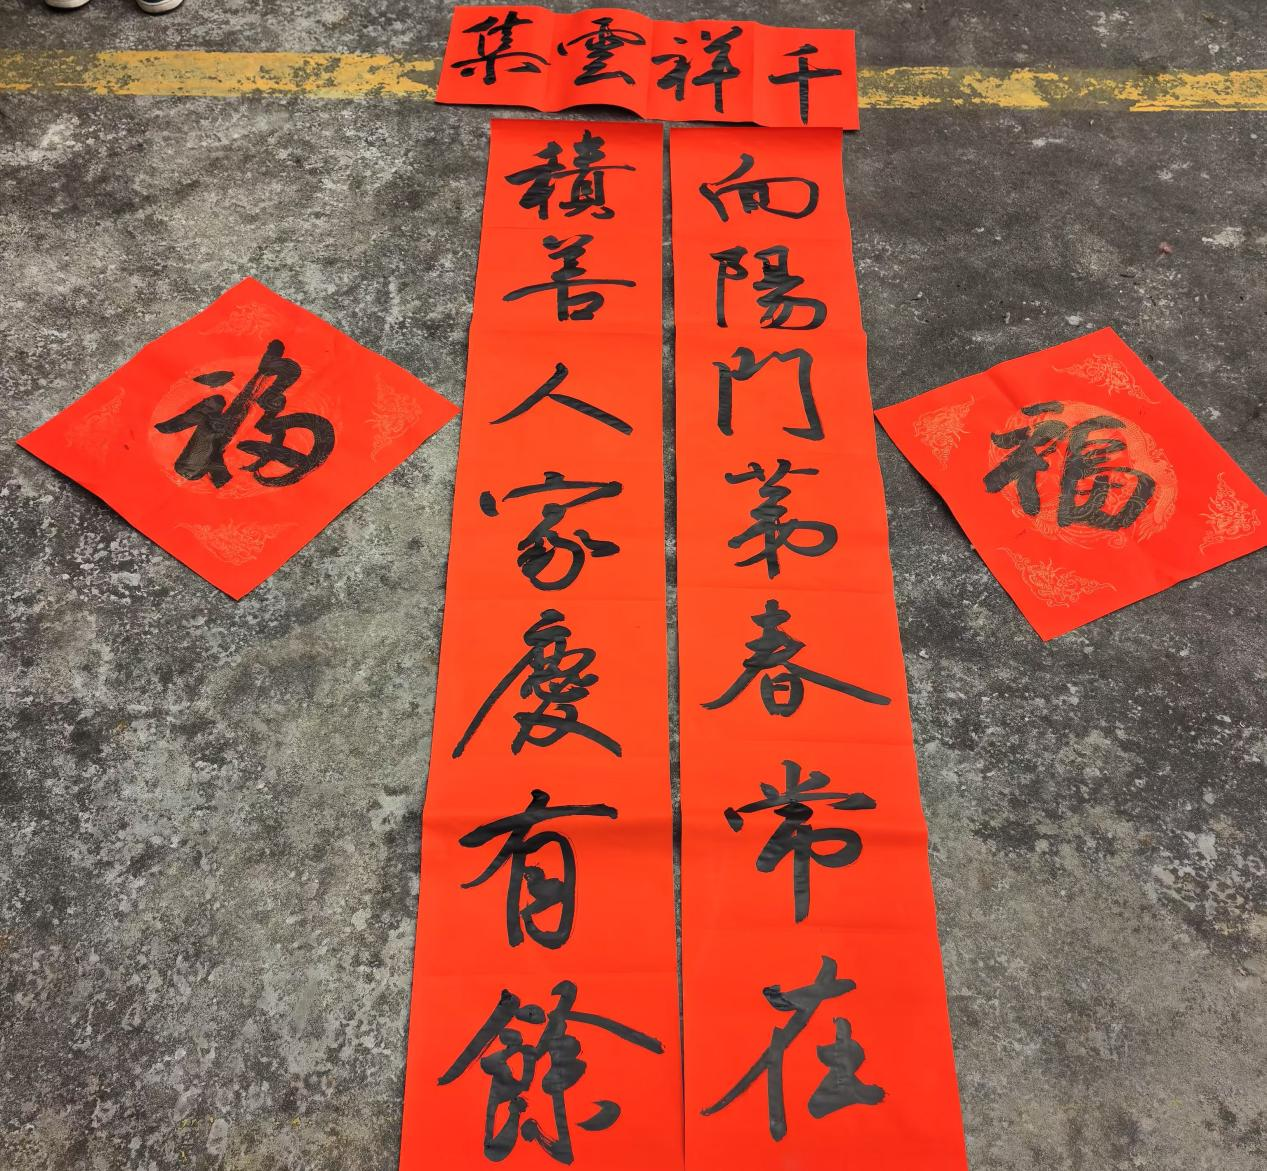 千祥雲集
向陽門苐春常在
積善人家慶有餘
福
福